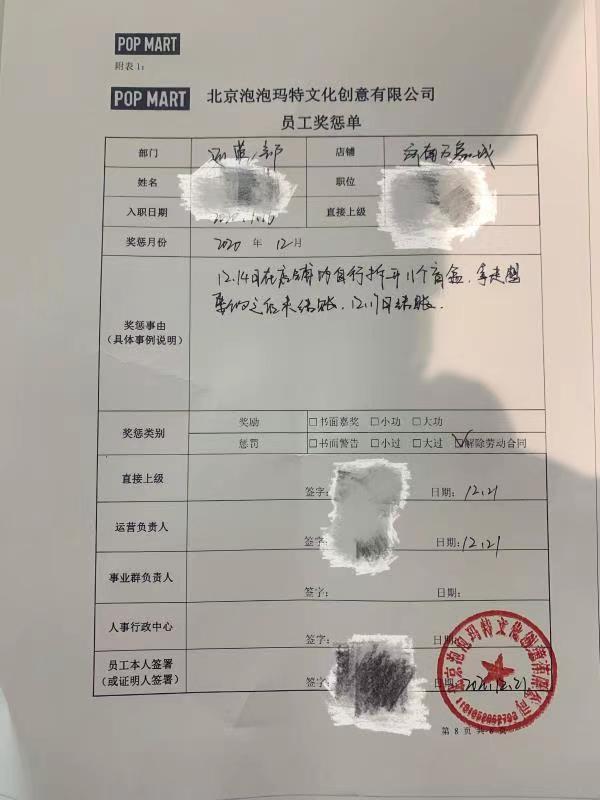 POP MART
附表1:
POP MART 北京泡泡玛特文化创意有限公司
员工奖惩单
部门 运营部 店铺 济南万象城
姓名 职位
入职日期 直接上级
奖惩月份 2020 年 12 月
12.14日在店铺内自行拆开11个盲盒,拿走
之后未结账,12.17日结账.
奖惩事由
(具体事例说明)
奖惩类别 奖励 □书面嘉奖 □小功 □大功
惩罚 □书面警告 □小过 □大过 ☑解除劳动合同
直接上级 签字: 日期: 12.21
运营负责人 签字: 日期: 12.21
事业群负责人 签字: 日期:
人事行政中心 签字:
员工本人签署
(或证明人签署) 签字: 日期: 2020.12.21
北京泡泡玛特文化创意有限公司
第 8 页 共 8 页